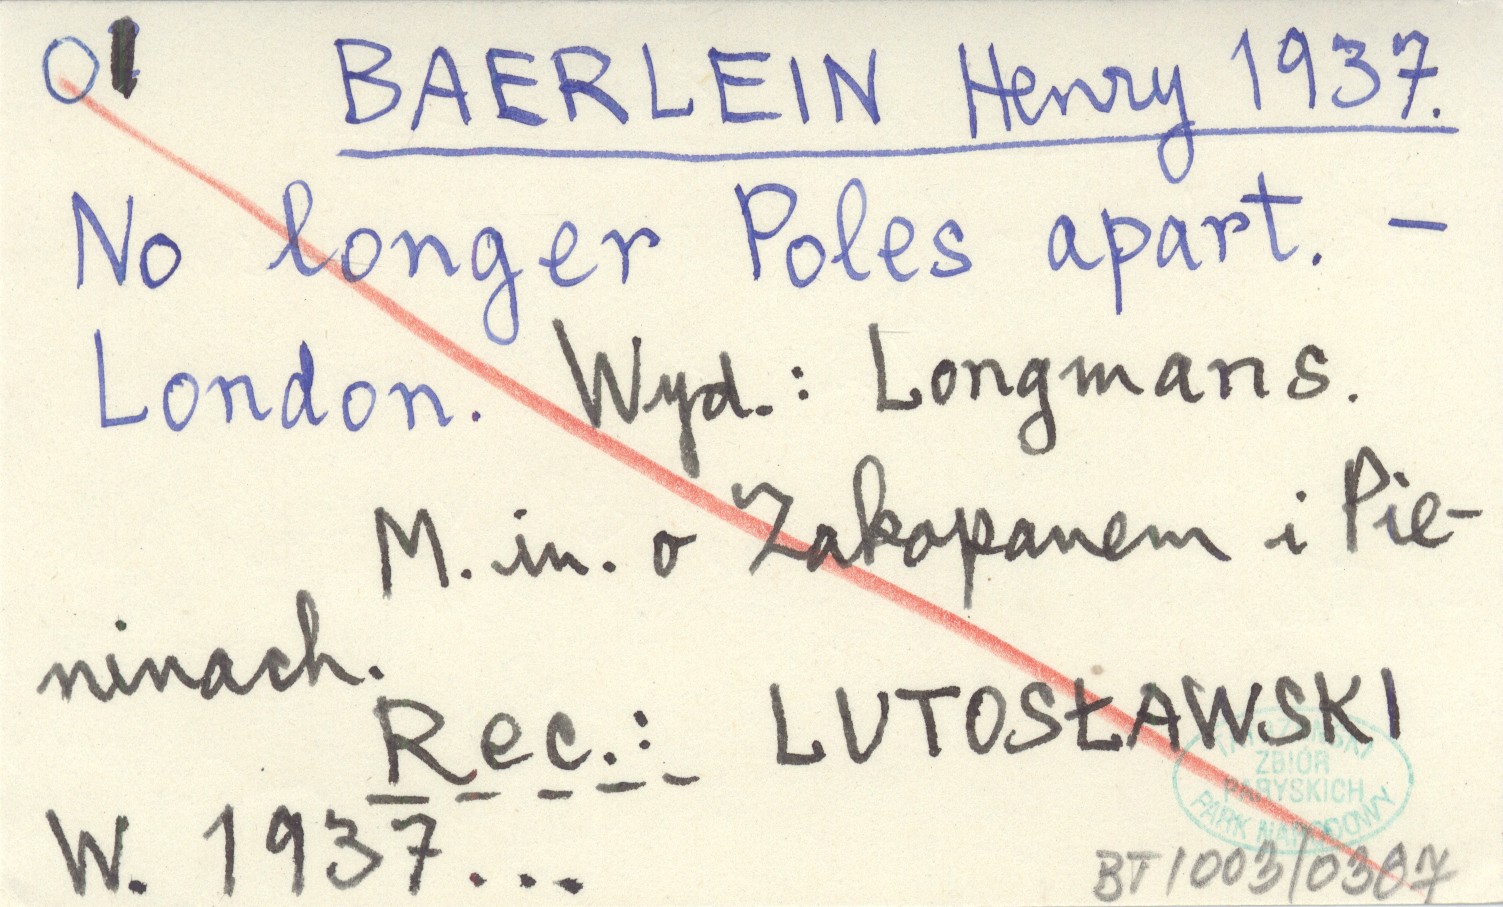 O1 BAERLEIN Henry 1937.
No longer Poles apart. –
London. Wyd.: Longmans.
M. in. o Zakopanem i Pie-
ninach.
Rec.: LUTOSŁAWSKI
W. 1937...
TATRZAŃSKI
ZBIÓR
PARYSKICH
PARK NARODOWY
BT/003/0387